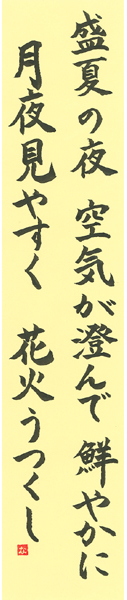 盛夏の夜 空気が澄んで 鮮やかに
月夜見やすく 花火うつくし